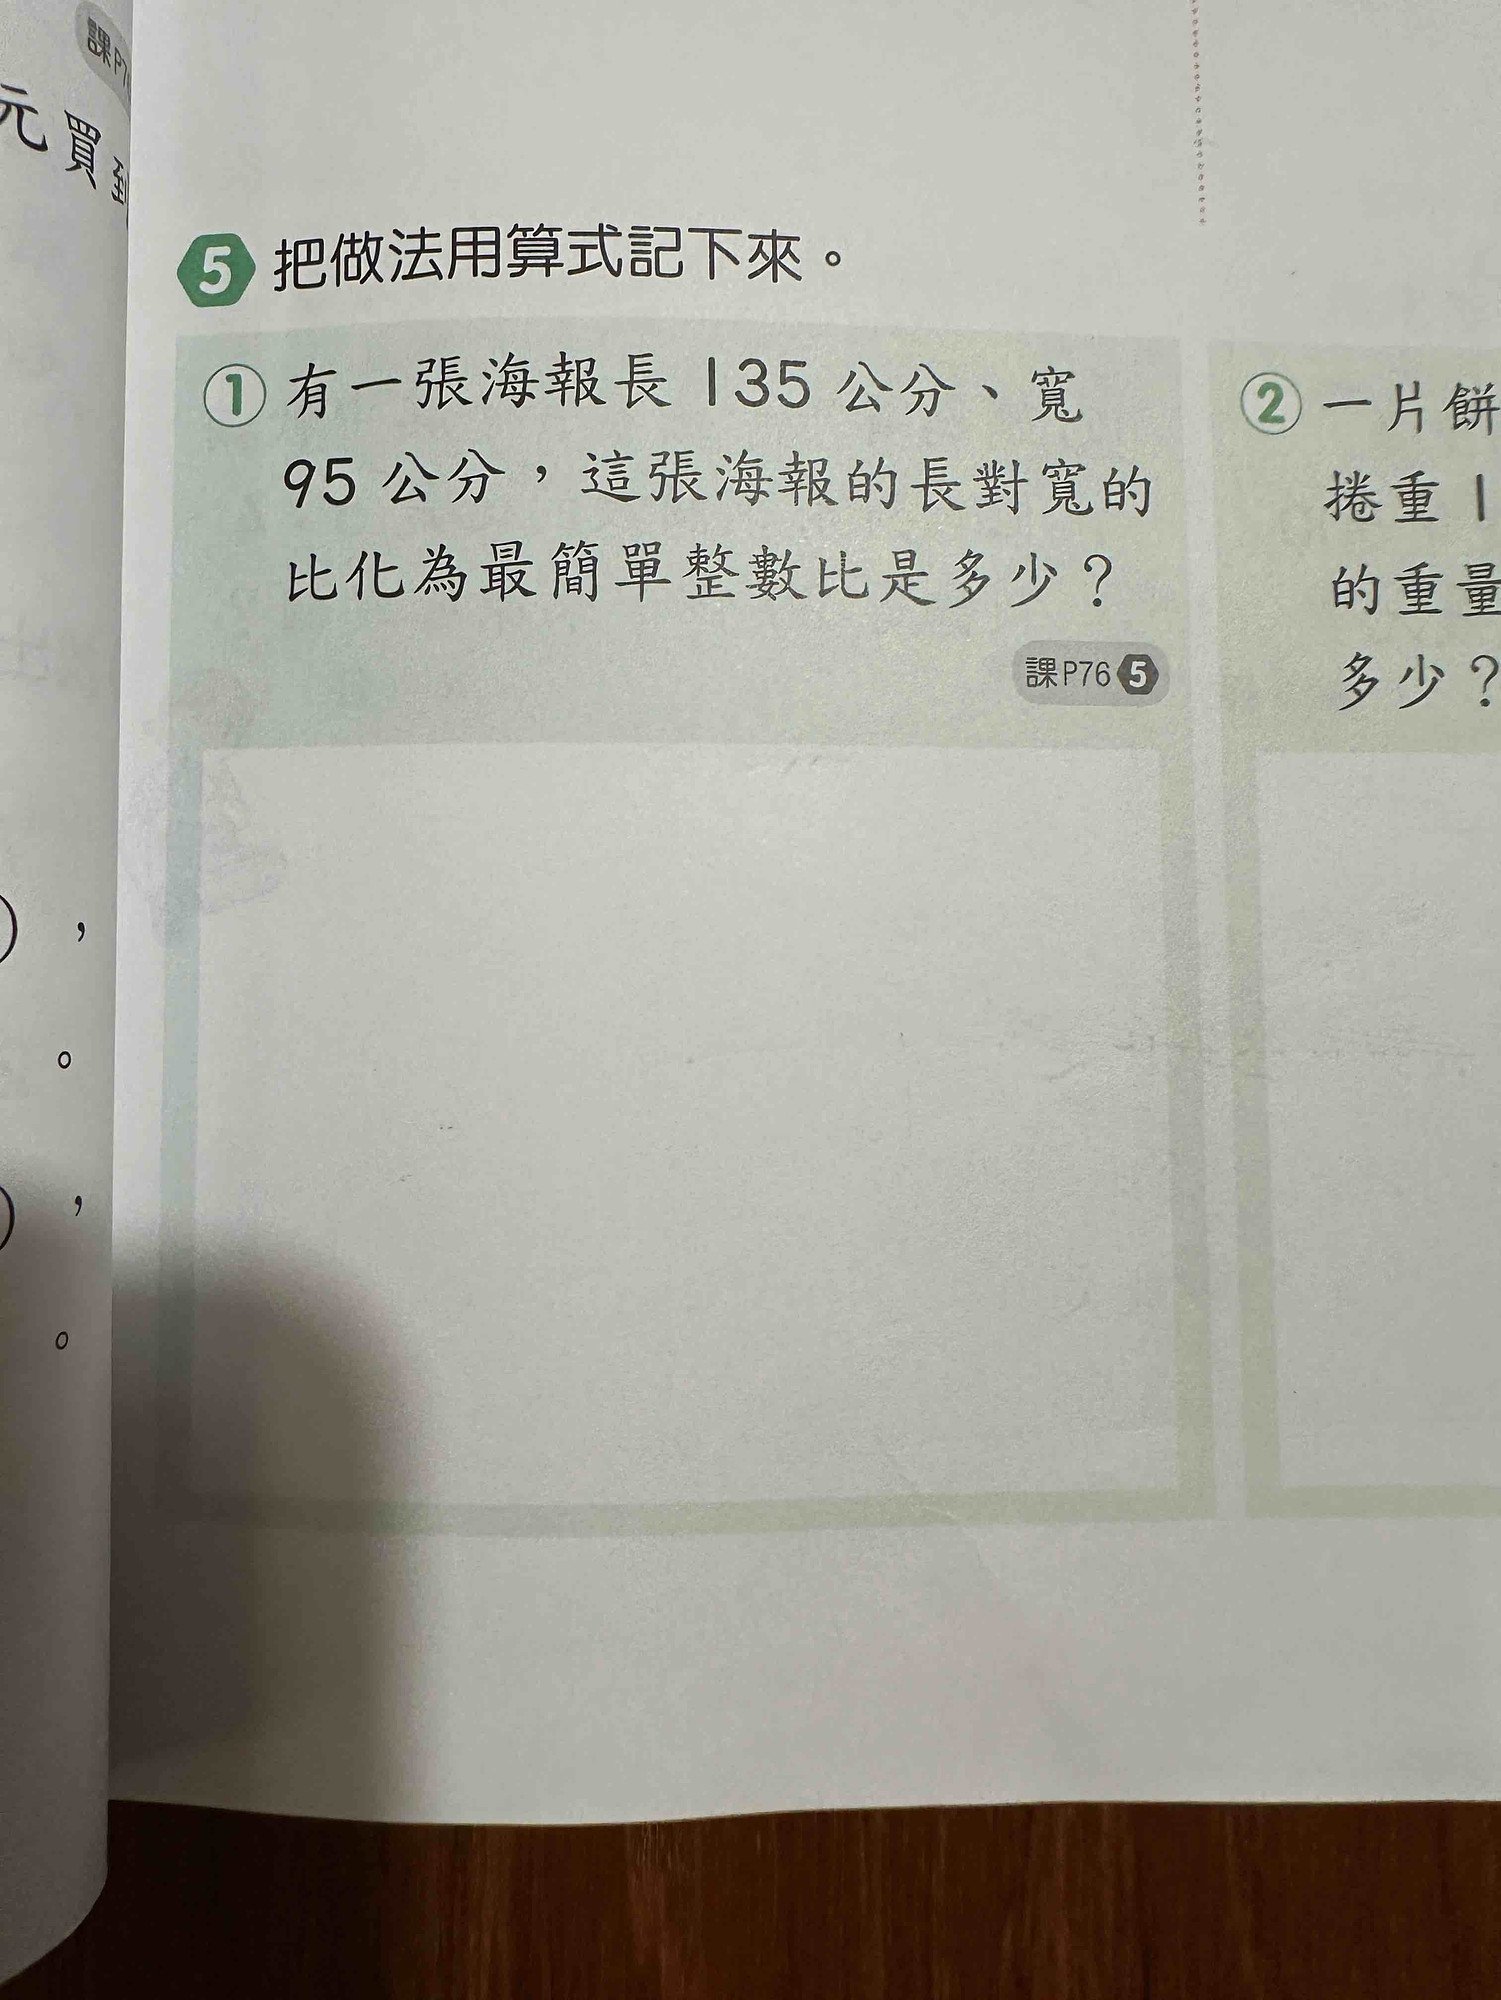 課P7
元買到
，
。
，
。
5 把做法用算式記下來。
① 有一張海報長 135 公分、寬
95 公分，這張海報的長對寬的
比化為最簡單整數比是多少？
課P76 5
② 一片餅
捲重 1
的重量
多少？